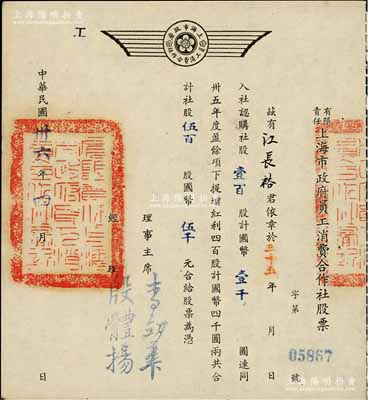 上海陽明拍賣
工
有限責任上海市政府員工消費合作社股票
字第 05867 號
茲有江長裕君依章於三十五年 月 日
入社認購社股壹百 股計國幣 壹千 圓連同
卅五年度盈餘項下提增紅利四百股計國幣四千圓兩共合
計社股 伍百 股國幣 伍千 元合給股票為憑
理事主席
經理
殷體揚
中華民國卅六年四月 日
上海陽明拍賣